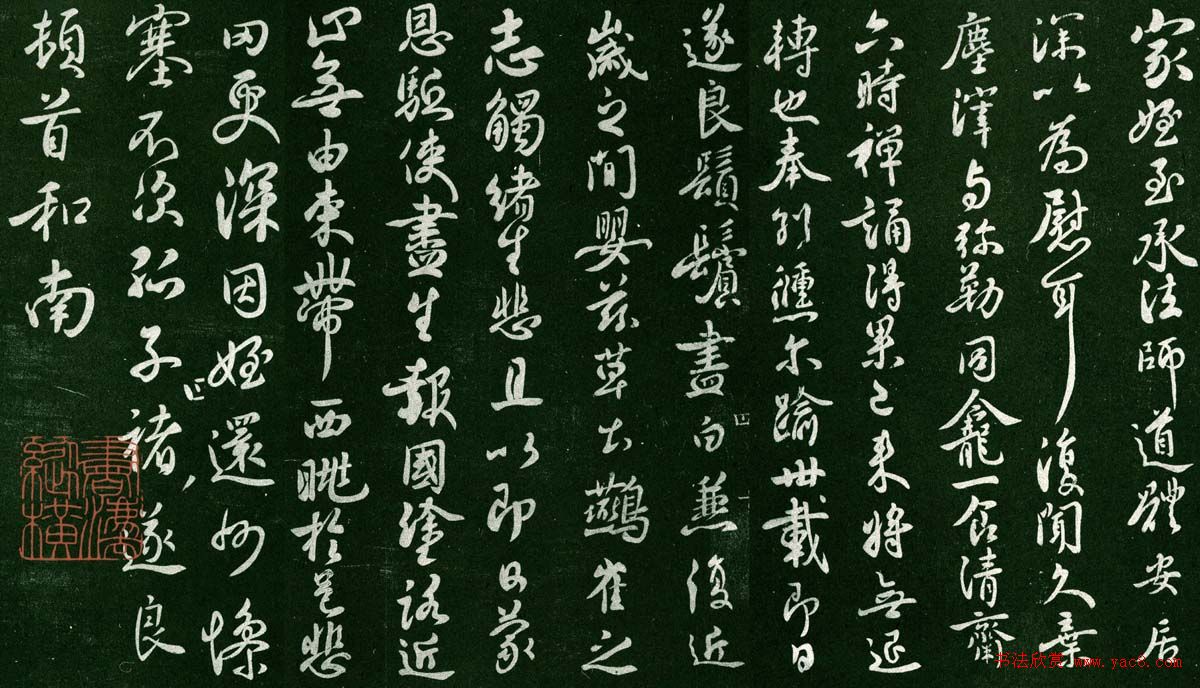 家姪至承法師道體安居
深以為慰耳復聞久棄
塵滓与弥勒同龕一食清齋
六時禅誦得果已来將無退
轉也奉別儵尒踰卅載即日
遂良鬚鬢盡白兼復近
歲之間嬰茲草土鷰雀之
志觸緒生悲且以即日蒙
恩驅使盡生報國塗路近
止無由束帶西眺於邑悲
罔更深因姪還州慘
塞不次孤子褚遂良
頓首和南
书法欣赏 www.yac8.com